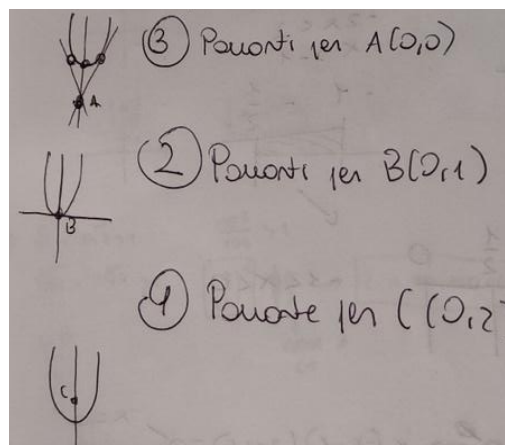 ③ Passanti per A(0,0)
A
② Passanti per B(0,1)
B
① Passante per C(0,2
C